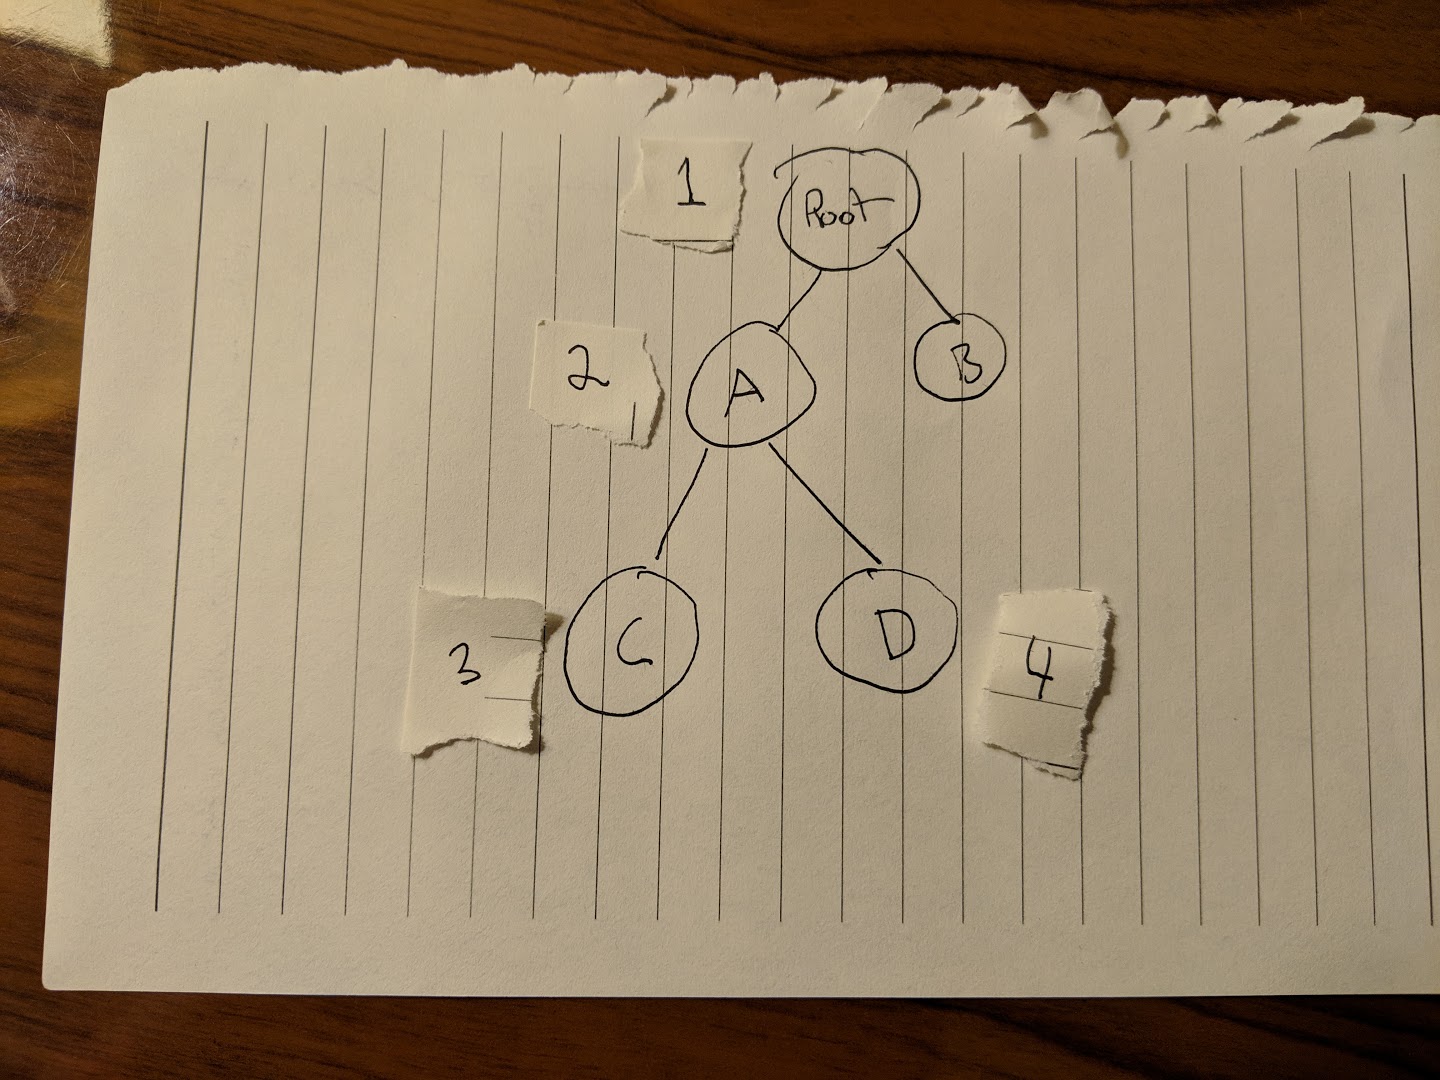 1
Root
2
A
B
3
C
D
4